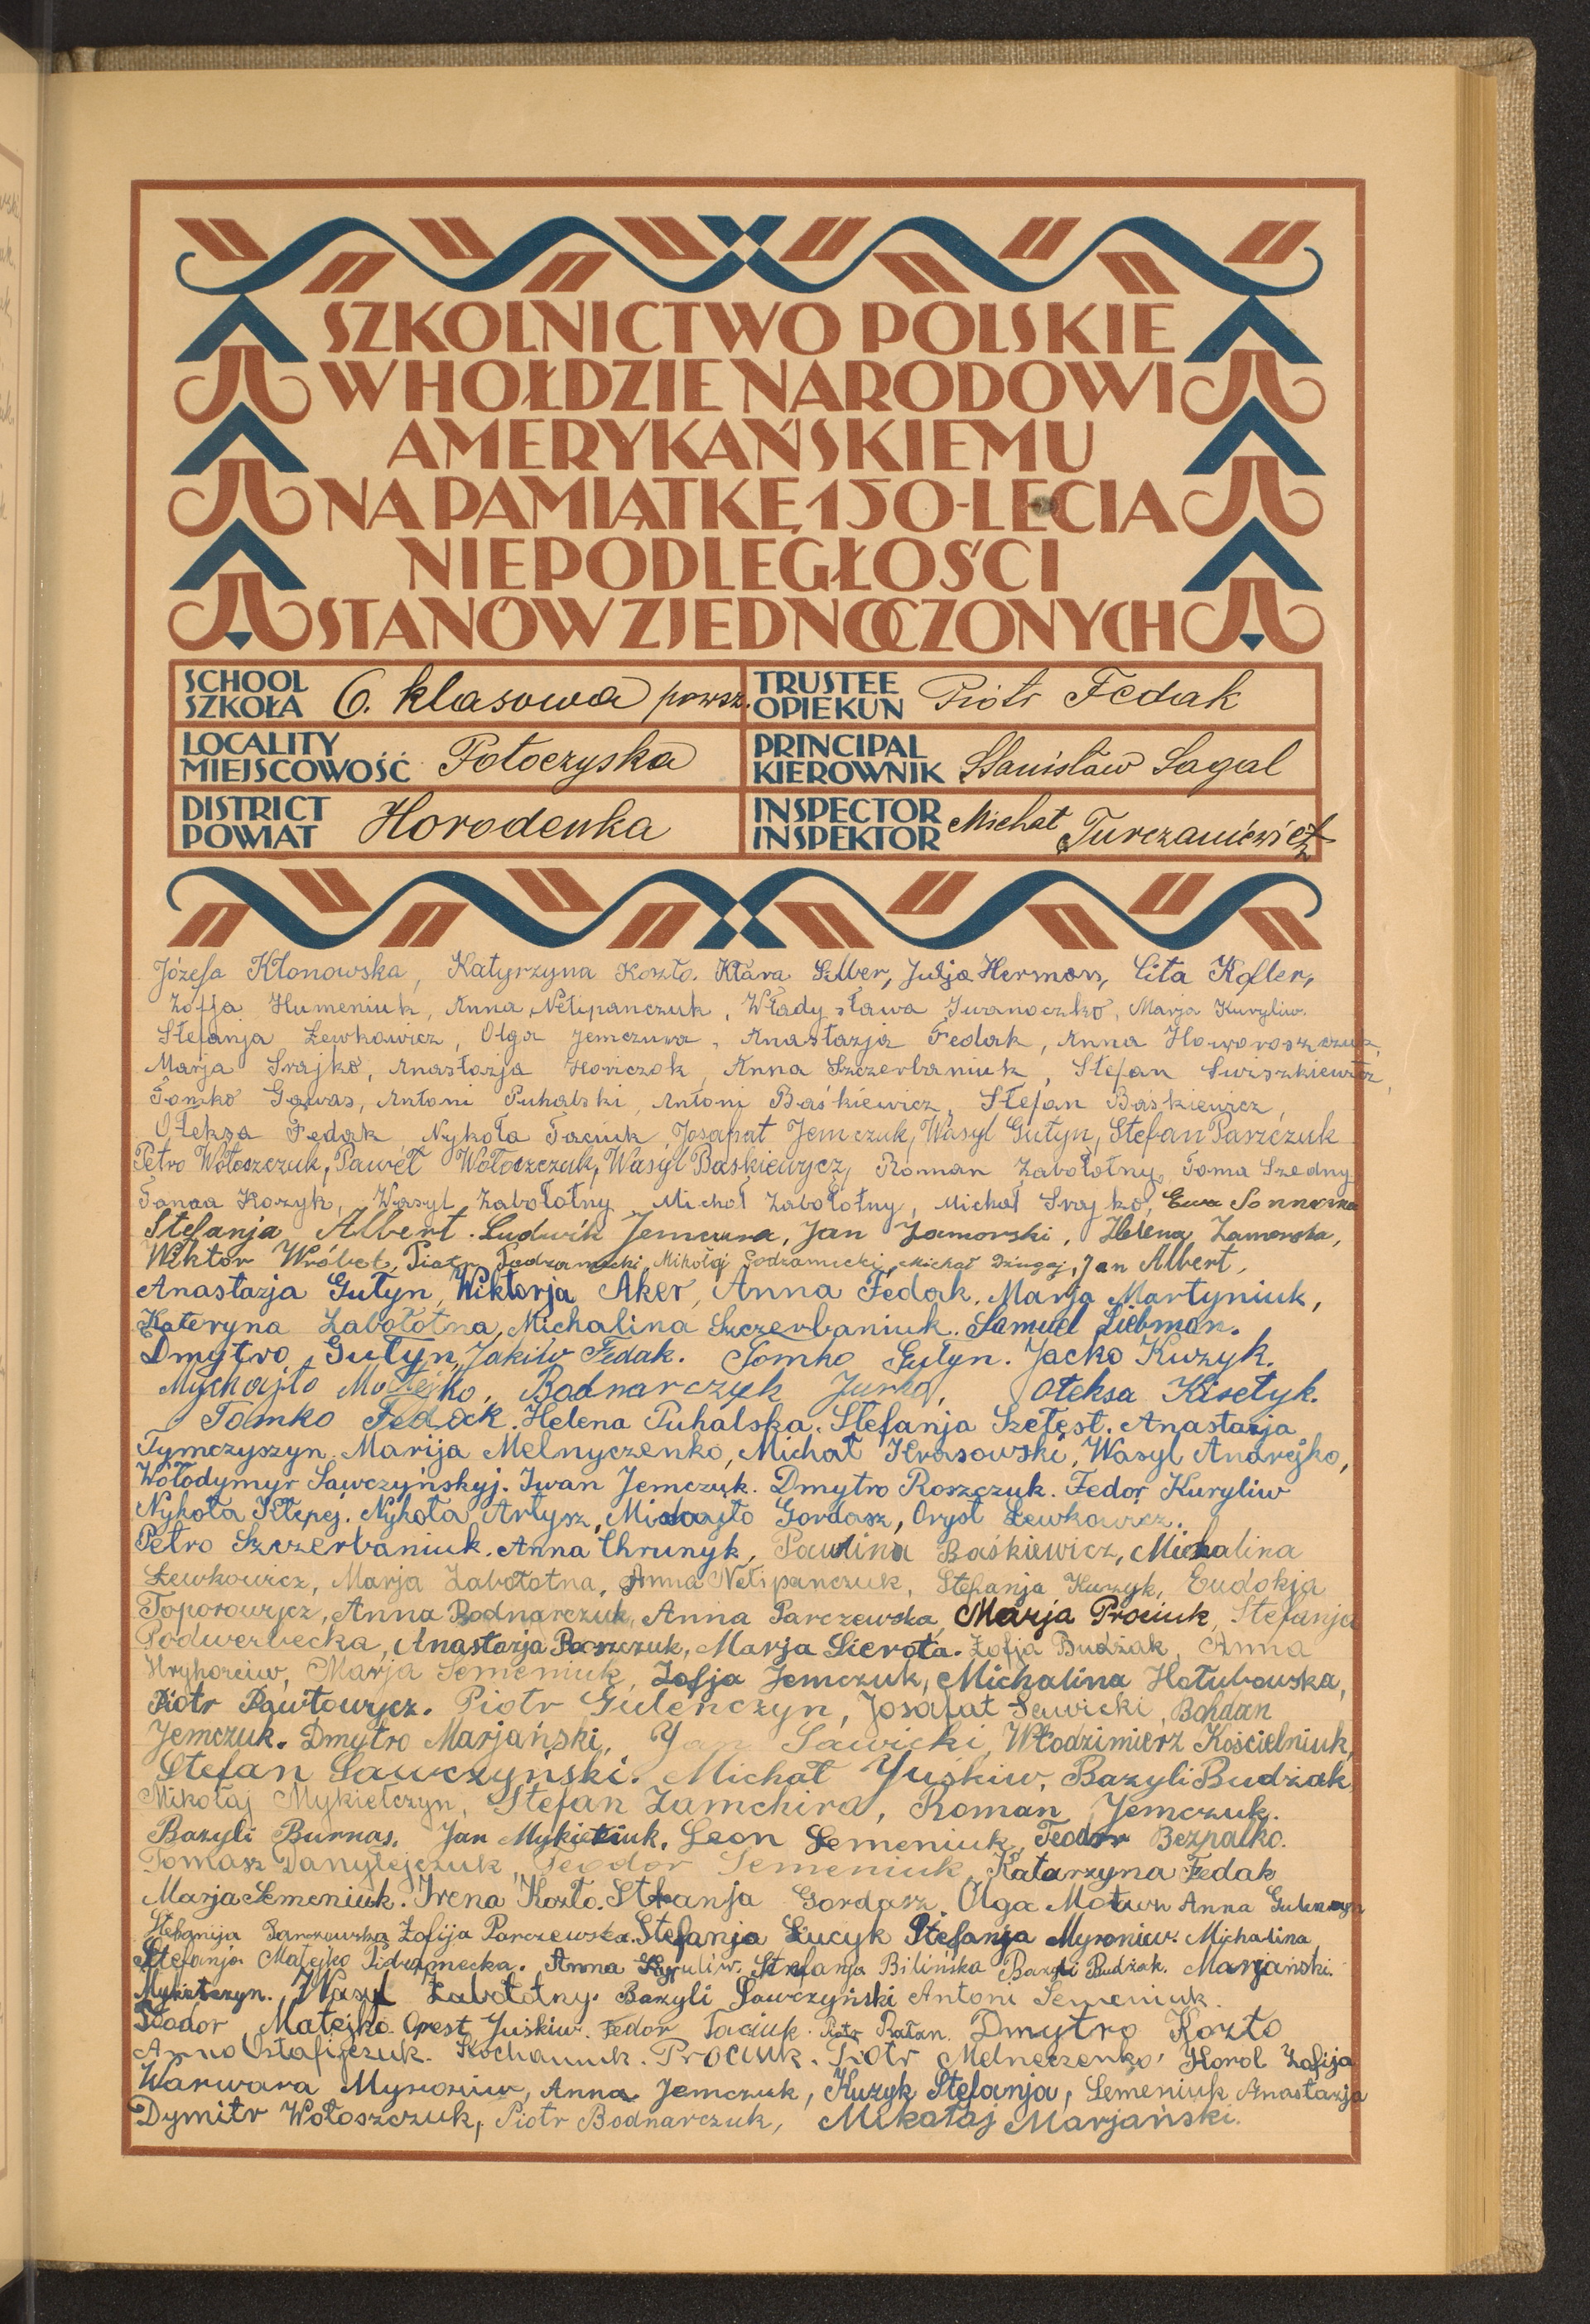 SZKOLNICTWO POLSKIE
W HOŁDZIE NARODOWI
AMERYKAŃSKIEMU
NA PAMIĄTKĘ 150-LECIA
NIEPODLEGŁOŚCI
STANÓW ZJEDNOCZONYCH
SCHOOL
SZKOŁA 6. klasowa powsz.
TRUSTEE
OPIEKUN Piotr Fedak
LOCALITY
MIEJSCOWOŚĆ Potoczyska
PRINCIPAL
KIEROWNIK Stanisław Sagal
DISTRICT
POWIAT Horodenka
INSPECTOR
INSPEKTOR Michał Turczaniewicz
Józefa Kłonowska, Katyrzyna Kozło. Klara Silber, Julja Hermon, Lita Kofler,
Zofja Humeniuk, Anna Nelipanczuk, Władysława Iwanoczko, Marja Kuryliw.
Stefanja Lewkowicz, Olga Jemczura, Anastazja Fedak, Anna Howoroszczuk,
Marja Srajko, Anastazja Horiczok, Anna Szczerbaniuk, Stefan Swiszkiewicz,
Tomko Gawas, Antoni Puhalski, Antoni Baśkiewicz, Stefan Baśkiewicz,
Ołeksa Fedak, Nykoła Taciuk, Josafat Jemczuk, Wasyl Gutyn, Stefan Paszczuk
Petro Wołoszczuk, Paweł Wołoszczuk, Wasyl Baskiewycz, Roman Zabołotny, Toma Szedny
Kozyk, Wasyl Zabołotny, Michał Zabołotny, Michał Srajko, Ewa
Stefanja Albert. Ludwik Jemczura, Jan Zamorski, Helena Zamorska,
Wiktor Wróbel, Piotr Podzamecki, Mikołaj Podzamecki, Michał Dżugaj, Jan Albert,
Anastazja Gutyn, Wiktorja Aker, Anna Fedak, Marja Martyniuk,
Kateryna Zabołotna, Michalina Szczerbaniuk. Samuel Liebman.
Dmytro Gutyn, Jakiw Fedak. Tomko Gutyn. Jacko Kuzyk.
Mychajło Motejko, Bodnarczuk Jurko, Ołeksa Kisełyk.
Tomko Fedak. Helena Puhalska. Stefanja Szelest. Anastazja
Tymczyszyn, Marija Melnyczenko, Michał Krasowski, Wasyl Andrejko,
Wołodymyr Sawczyńskyj. Iwan Jemczuk. Dmytro Roszczuk. Fedor Kuryliw
Nykoła Kłepej. Nykoła Artysz, Gordasz, Oryst Lewkowicz.
Petro Szczerbaniuk. Anna Chrunyk, Paulina Baśkiewicz, Michalina
Lewkowicz, Marja Zabołotna, Anna Nelipanczuk, Stefanja Kuzyk, Eudokja
Toporowycz, Anna Bodnarczuk, Anna Parczewska, Marja Prociuk, Stefanja
Podwerbecka, Anastazja Paszczuk, Marja Sierota. Zofja Budżak, Anna
Hryhorciw, Marja Semeniuk, Zofja Jemczuk, Michalina Hołubowska,
Piotr Pawłowycz. Piotr Guleńczyn, Josafat Sawicki, Bohdan
Jemczuk. Dmytro Marjański, Jan Sawicki, Włodzimierz Kościelniuk,
Stefan Sawczyński. Michał Yuśkiw, Bazyli Budżak,
Mikołaj Mykietczyn, Stefan Zamchira, Roman Jemczuk.
Bazyli Burnas. Jan Mykietiuk. Leon Semeniuk, Teodor Bezpalko.
Tomasz Danylejczuk, Teodor Semeniuk, Katarzyna Fedak
Marja Semeniuk. Irena Kozło. Stefanja Gordasz. Olga Anna
Stefanija Parczewska Zofija Parczewska. Stefanja Łucyk Stefanja Myroniuw. Michalina
Stefanja Matejko Anna Stefanja Bilińska Bazyli Budżak. Marjański.
Mykietczyn. Wasyl Zabołotny. Bazyli Sawczyński Antoni Semeniuk.
Teodor Matejko. Orest Juśkiw. Fedor Taciuk. Piotr Dmytro Kozło
Anna Ostafijczuk. Prociuk. Piotr Melneczenko, Horol Zofija
Warwara Myroniw, Anna Jemczuk, Kuzyk Stefanja, Semeniuk Anastazja
Dymitr Wołoszczuk, Piotr Bodnarczuk, Mikołaj Marjański.